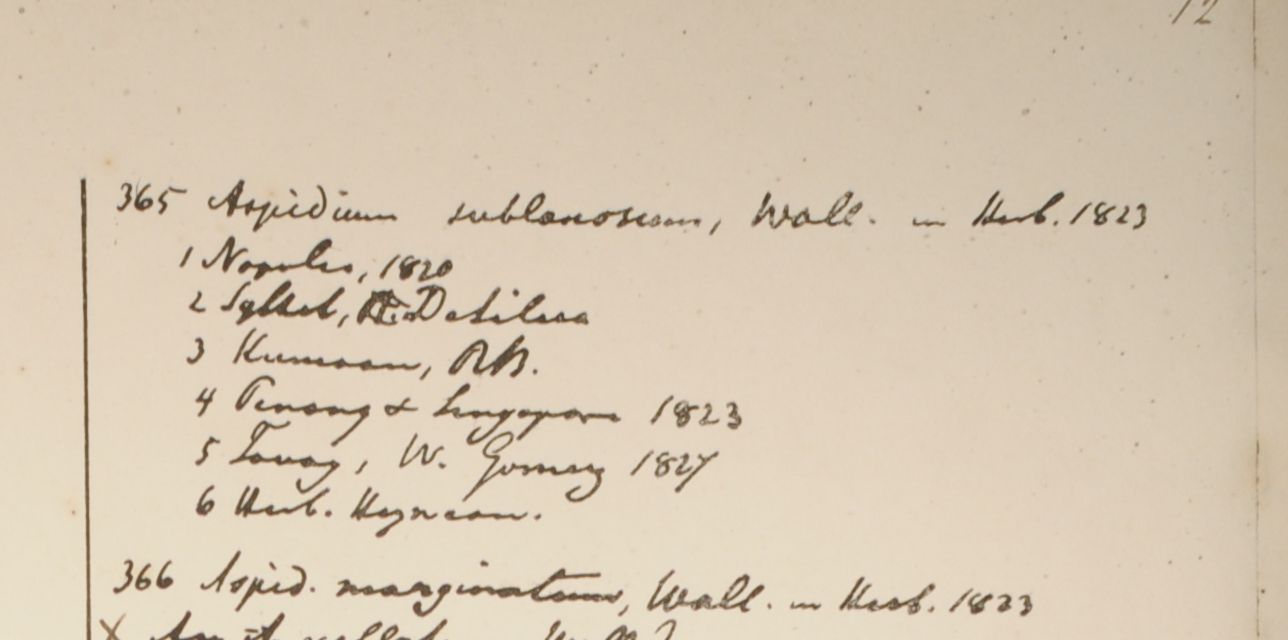 12
365 Aspidium sublanosum, Wall. in Herb. 1823
1 Napalia, 1820
2 Sylhet, DeSilva
3 Kumaon, RB.
4 Penang & Singapore 1823
5 Tavoy, W. Gomez 1827
6 Herb. Heynean.
366 Aspid. marginatum, Wall. in Herb. 1823
X An A. Wall?